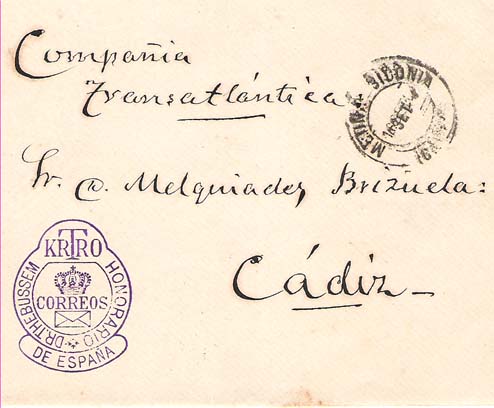 Compañia
Transatlántica
MEDINA SIDONIA
16 SET
Sr. D. Melquiades Brizuela:
Cádiz
KRTRO
DR. THEBUSSEM HONORARIO
CORREOS
DE ESPAÑA